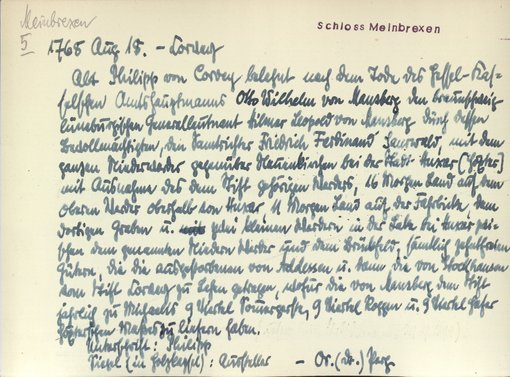 Meinbrexen
5
Schloss Meinbrexen
1765 Aug 18. – Corvey
Abt Philipp von Corvey belehnt nach dem Tode des Hessel-Kas-
selschen Amtshauptmanns Otto Wilhelm von Mansberg den braunschweig-
lüneburgischen Generalleutnant Hilmar Leopold von Mansberg durch dessen
Bevollmächtigten, den Landrichter Friedrich Ferdinand mit dem
ganzen Niederwerder gegenüber bei der Stadt Huxar (Höxter)
mit Ausnahme des dem Stift gehörigen Werders, 16 Morgen Land auf dem
oberen Werder oberhalb von Huxar 11 Morgen Land auf der dem
dortigen Graben u. zwei kleinen Werdern in der bei Huxar zwi-
schen dem genannten Niedern Werder und dem Brückfeld, sämtlich
Gütern, die die ausgestorbenen von Addessen u. dann die von Stockhausen
vom Stift Corvey zu Lehen getragen, wofür die von Mansberg dem Stift
jährlich zu Michaelis 9 Viertel 9 Viertel Roggen u. 9 Viertel Hafer
Höxterschen Masses zu liefern haben.
Unterschrift: Philipp
Siegel (in Holzkapsel): Aussteller – Or. (dt.) Perg.